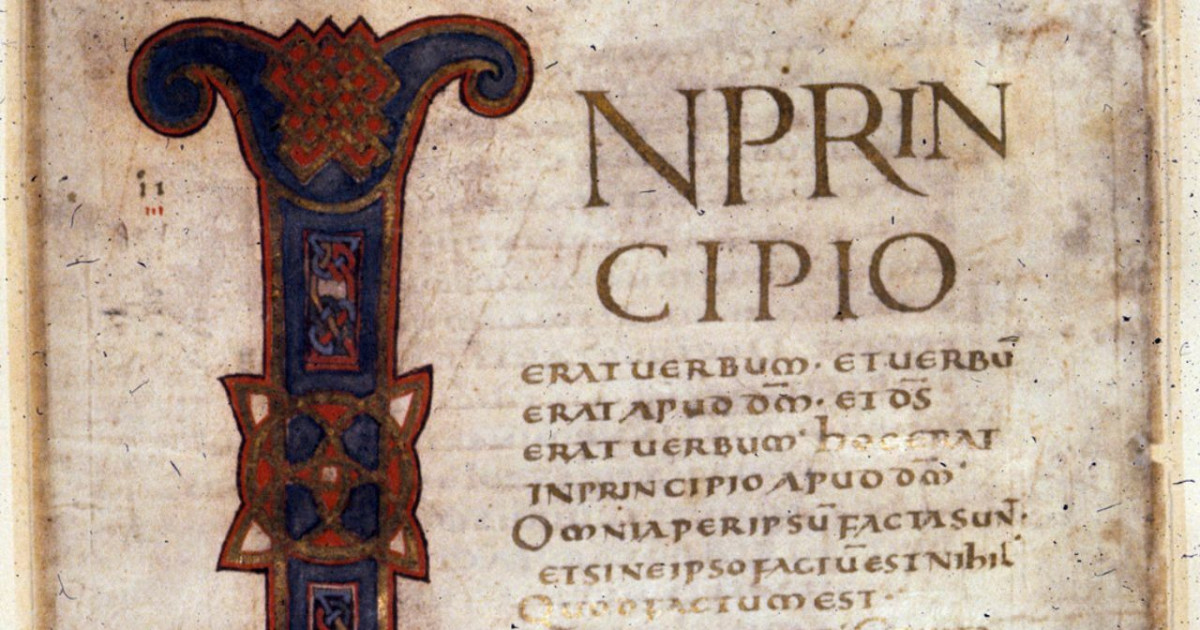 INPRIN
CIPIO
ERAT UERBUM· ET UERBŪ
ERAT APUD DM̄· ET DS̄
ERAT UERBUM· hOC ERAT
IN PRINCIPIO APUD DM̄·
OMNIA PER IPSŪ FACTA SUN̄T·
ET SINE IPSO FACTŪ EST NIhIL
QUOD FACTUM EST·
ii